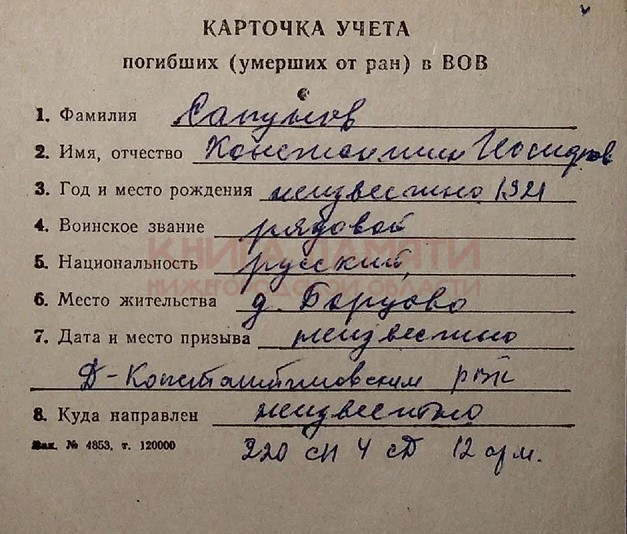 КАРТОЧКА УЧЕТА
погибших (умерших от ран) в ВОВ
1. Фамилия Сапунов
2. Имя, отчество Константин
3. Год и место рождения неизвестно 1921
4. Воинское звание рядовой
5. Национальность русский
КНИГА ПАМЯТИ
НИЖЕГОРОДСКОЙ ОБЛАСТИ
6. Место жительства д. Борцово
7. Дата и место призыва неизвестно
Д-Константиновским рвк
8. Куда направлен неизвестно
Зак. № 4853, т. 120000
220 сп 4 сд 12 арм.